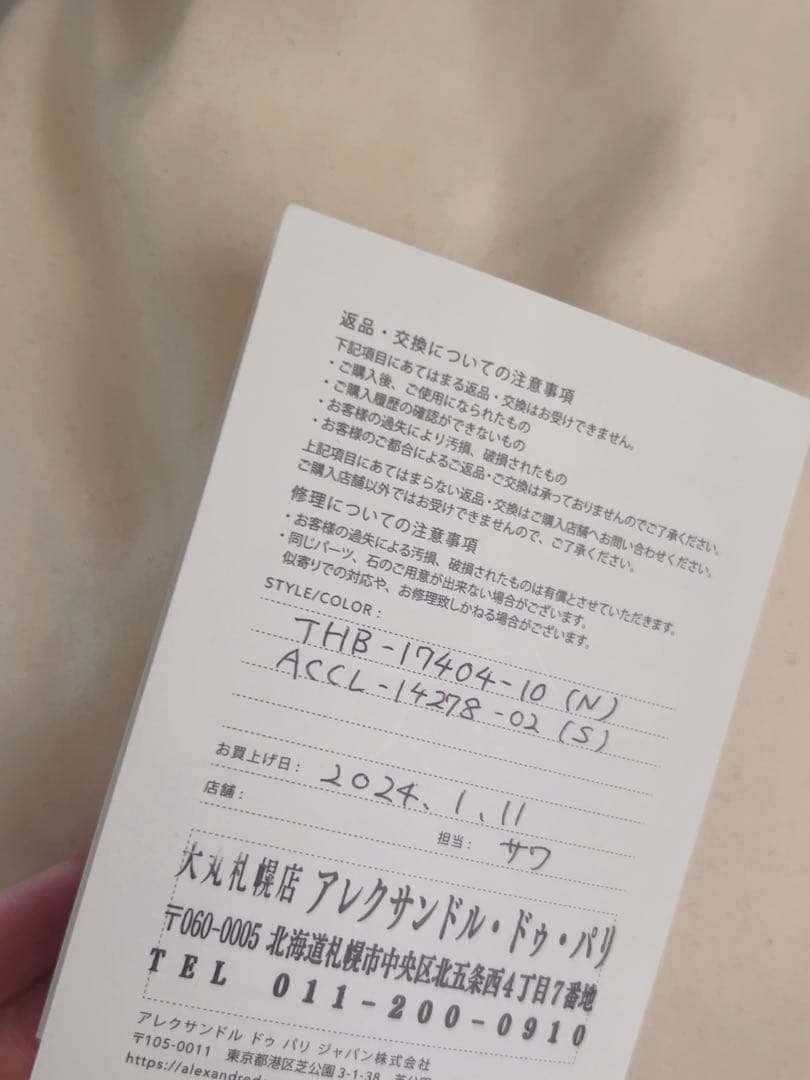 返品・交換についての注意事項
下記項目にあてはまる返品・交換はお受けできません。
・ご購入後、ご使用になられたもの
・ご購入履歴の確認ができないもの
・お客様の過失により汚損、破損されたもの
・お客様のご都合によるご返品・ご交換は承っておりませんのでご了承ください。
上記項目にあてはまらない返品・交換はご購入店舗へお問い合わせください。
ご購入店舗以外ではお受けできませんので、ご了承ください。
修理についての注意事項
・お客様の過失による汚損、破損されたものは有償とさせていただきます。
・同じパーツ、石のご用意が出来ない場合がございます。
似寄りでの対応や、お修理致しかねる場合がございます。
STYLE/COLOR:
THB-17404-10 (N)
ACCL-14278-02 (S)
お買上げ日: 2024.1.11
店舗: 担当: サワ
大丸札幌店 アレクサンドル・ドゥ・パリ
〒060-0005 北海道札幌市中央区北五条西4丁目7番地
TEL 011-200-0910
アレクサンドル ドゥ パリ ジャパン株式会社
〒105-0011 東京都港区芝公園3-1-38
https://alexandred